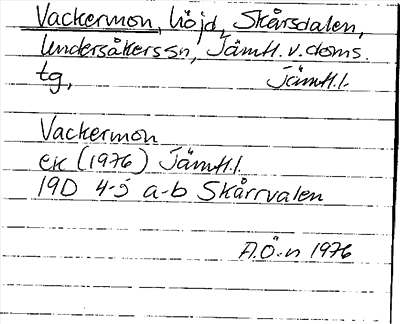 Vackermon, höjd, Skårsdalen,
Undersåkers sn, Jämtl. v. doms.
tg, Jämtl. l.
Vackermon
ek (1976) Jämtl. l.
19D 4-5 a-b Skårrvalen
A.Ö-n 1976